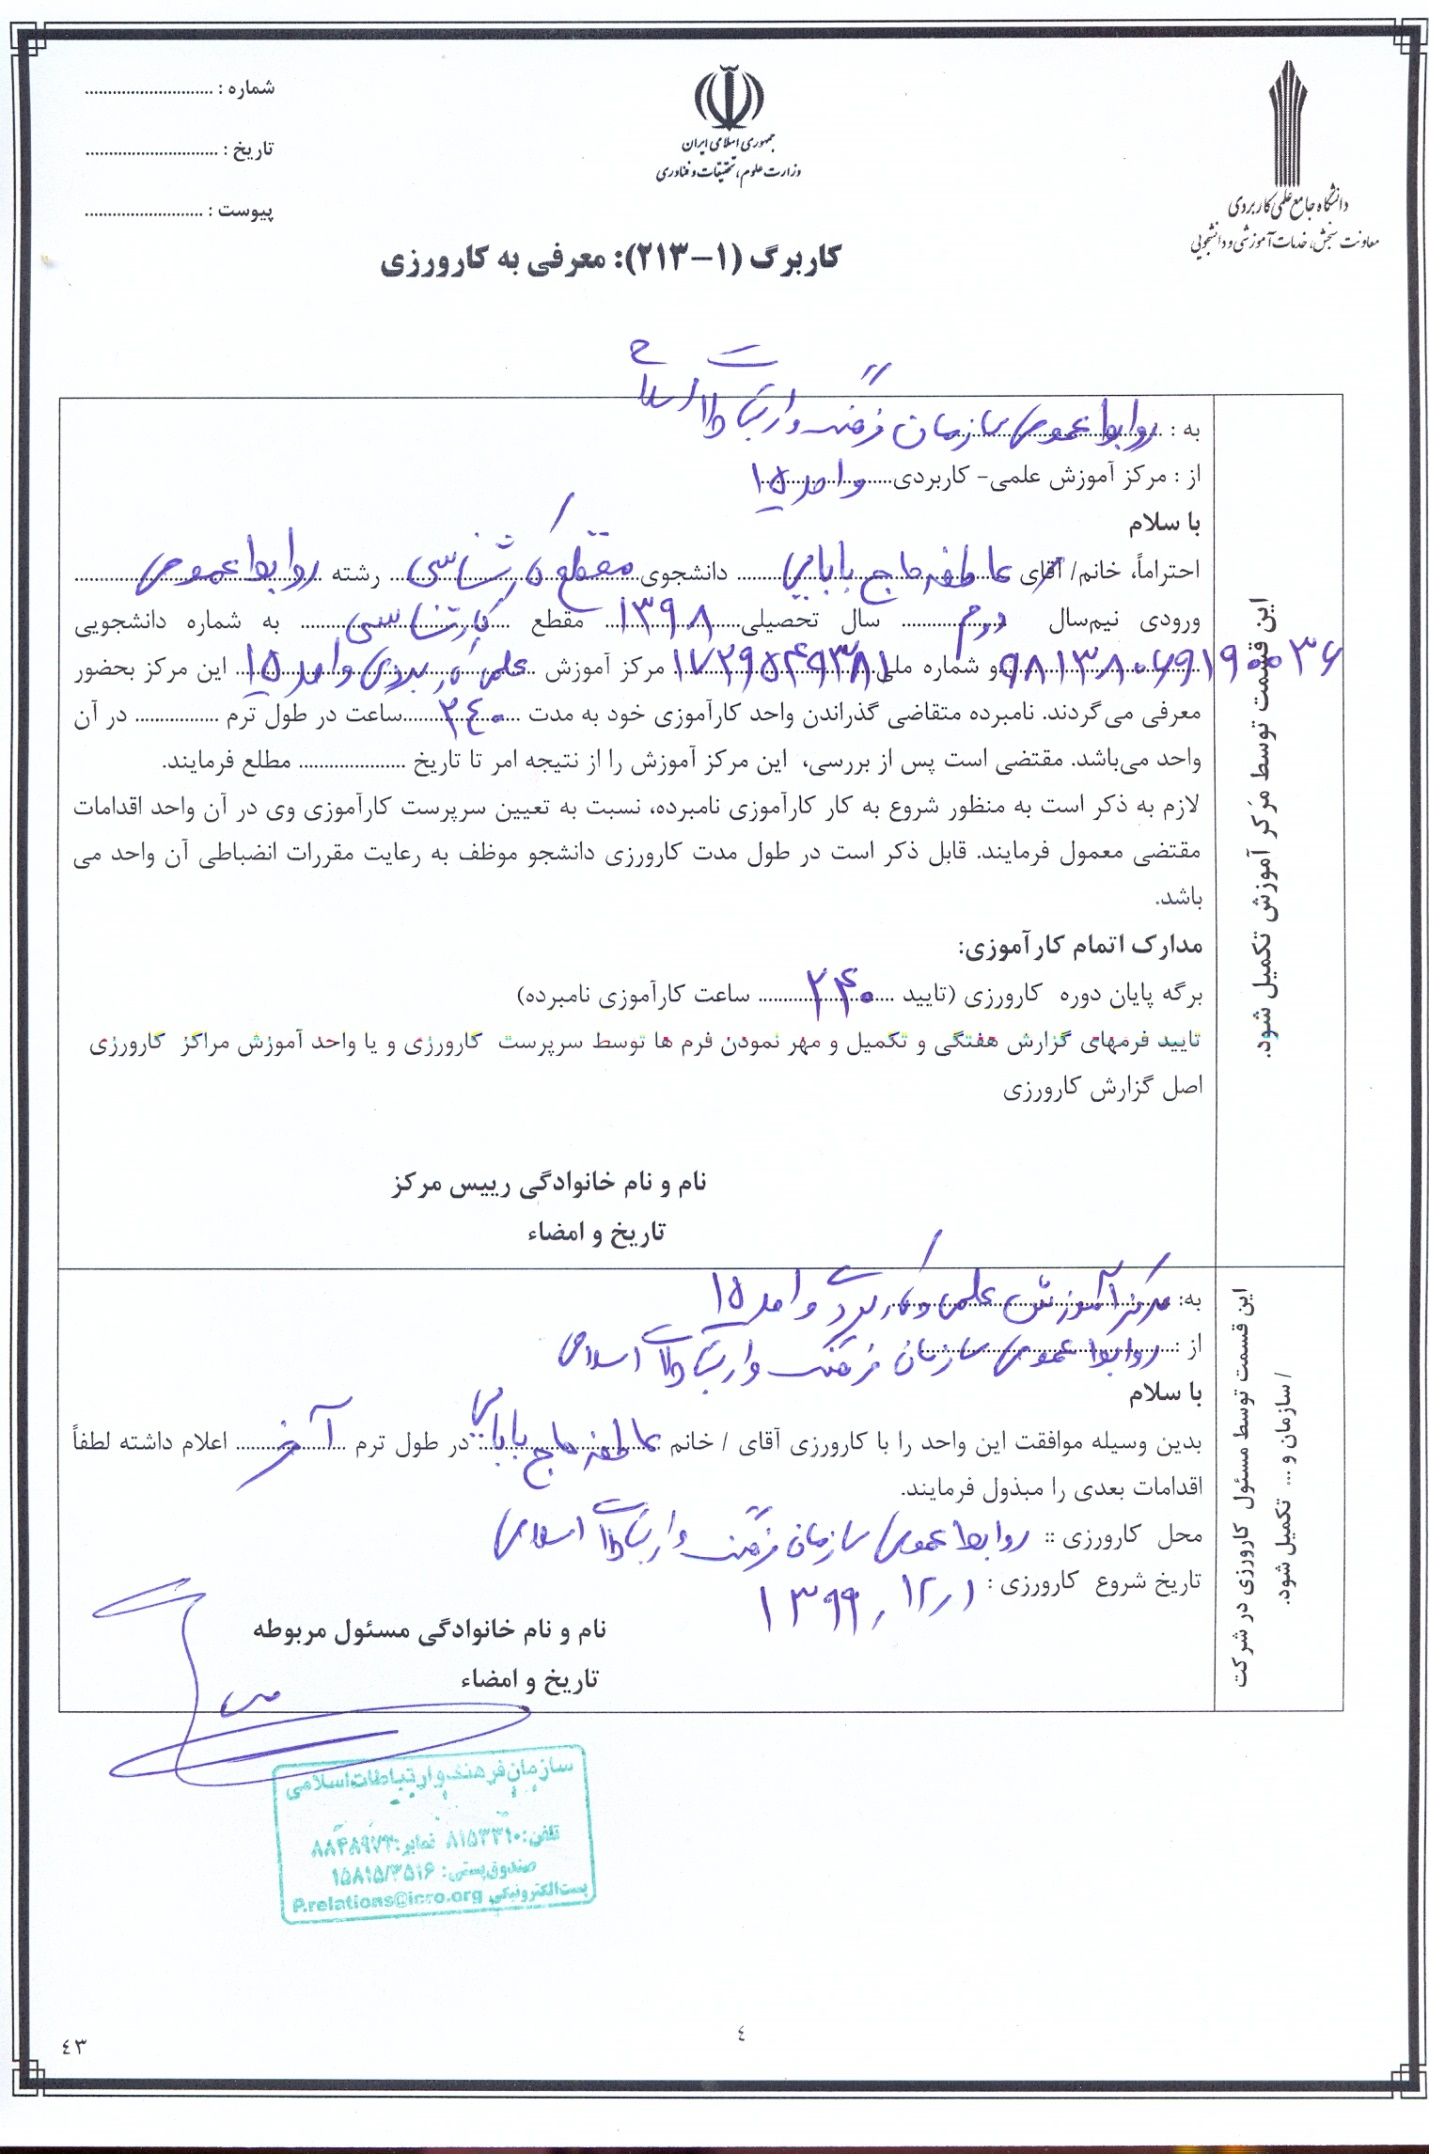 شماره : ............................
تاریخ : ............................
پیوست : ..........................
جمهوری اسلامی ایران
وزارت علوم، تحقیقات و فناوری
دانشگاه جامع علمی کاربردی
معاونت سنجش، خدمات آموزشی و دانشجویی
کاربرگ (۱-۲۱۳): معرفی به کارورزی
به : روابط عمومی سازمان فرهنگ و ارتباطات اسلامی
از : مرکز آموزش علمی- کاربردی واحد ۱۵
با سلام
احتراماً، خانم/ آقای عاطفه حاج بابایی دانشجوی مقطع کارشناسی رشته روابط عمومی
ورودی نیم‌سال دوم سال تحصیلی ۱۳۹۸ مقطع کارشناسی به شماره دانشجویی
و شماره ملی مرکز آموزش علمی کاربردی واحد ۱۵ این مرکز بحضور
معرفی می‌گردند. نامبرده متقاضی گذراندن واحد کارآموزی خود به مدت ۲۴۰ ساعت در طول ترم ................ در آن
واحد می‌باشد. مقتضی است پس از بررسی، این مرکز آموزش را از نتیجه امر تا تاریخ .................... مطلع فرمایند.
لازم به ذکر است به منظور شروع به کار کارآموزی نامبرده، نسبت به تعیین سرپرست کارآموزی وی در آن واحد اقدامات
مقتضی معمول فرمایند. قابل ذکر است در طول مدت کارورزی دانشجو موظف به رعایت مقررات انضباطی آن واحد می
باشد.
مدارک اتمام کارآموزی:
برگه پایان دوره کارورزی (تایید ۲۴۰ ساعت کارآموزی نامبرده)
تایید فرمهای گزارش هفتگی و تکمیل و مهر نمودن فرم ها توسط سرپرست کارورزی و یا واحد آموزش مراکز کارورزی
اصل گزارش کارورزی
نام و نام خانوادگی رییس مرکز
تاریخ و امضاء
این قسمت توسط مرکز آموزش تکمیل شود.
به: مرکز آموزش علمی و کاربردی واحد ۱۵
از : روابط عمومی سازمان فرهنگ و ارتباطات اسلامی
با سلام
بدین وسیله موافقت این واحد را با کارورزی آقای / خانم عاطفه حاج بابایی در طول ترم آخر اعلام داشته لطفاً
اقدامات بعدی را مبذول فرمایند.
محل کارورزی :: روابط عمومی سازمان فرهنگ و ارتباطات اسلامی
تاریخ شروع کارورزی : ۱ر۱۲ر۱۳۹۹
نام و نام خانوادگی مسئول مربوطه
تاریخ و امضاء
این قسمت توسط مسئول کارورزی در شرکت
/ سازمان و ... تکمیل شود.
سازمان فرهنگ و ارتباطات اسلامی
تلفن: ۸۱۵۳۳۱۰ نمابر:
صندوق پستی: ۱۵۸۱۵/۳۵۱۶
پست الکترونیکی P.relations@icro.org
٤
٤٣